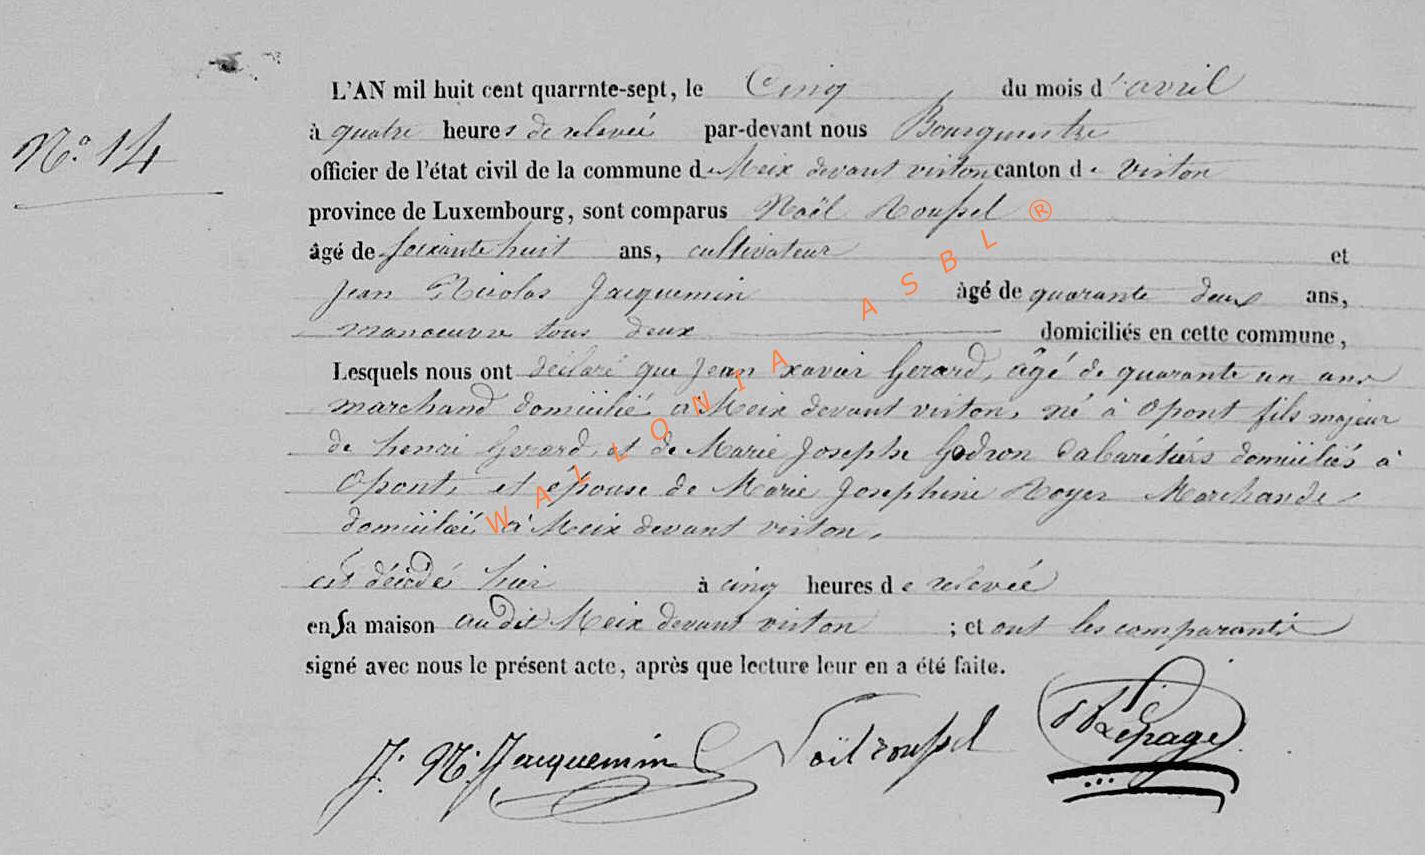 N.o 14
L'AN mil huit cent quarrnte-sept, le Cinq du mois d'avril
à quatre heures de relevée par-devant nous Bourguestre
officier de l'état civil de la commune de Meix devant virton canton de Virton
province de Luxembourg, sont comparus Noël Roussel
âgé de soixante huit ans, cultivateur et
Jean Nicolas Jacquemin âgé de quarante deux ans,
manoeuvre tous deux domiciliés en cette commune,
Lesquels nous ont déclaré que Jean xavier Gerard, âgé de quarante un ans
marchand domicilié à Meix devant virton, né à Opont fils majeur
de henri Gerard et de Marie Josephe Godron Cabarétiers domiciliés à
Opont, et épouse de Marie Josephine Royer Marchande
domiciliée à Meix devant virton,
est décédé hier à cinq heures de relevée
en sa maison audit Meix devant virton ; et ont les comparants
signé avec nous le présent acte, après que lecture leur en a été faite.
J. N. Jacquemin Noël roussel Lepage
WALLONIA ASBL ®